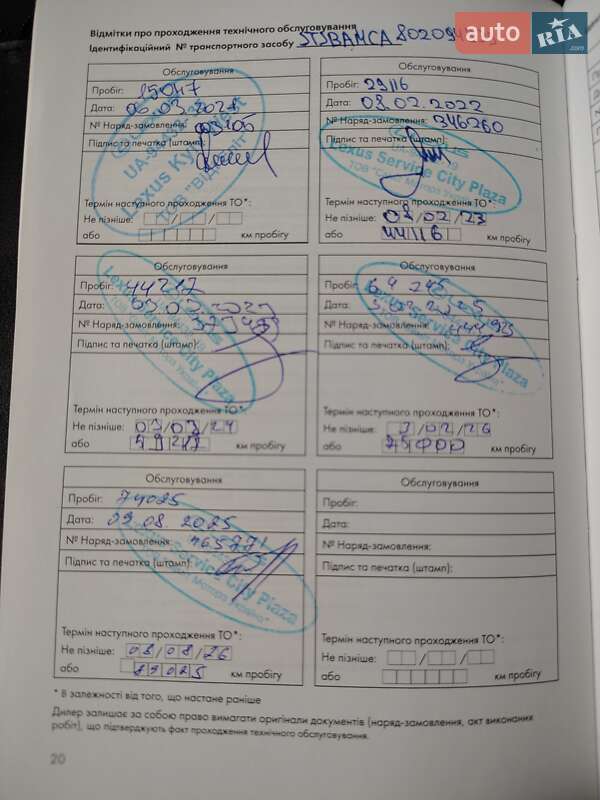 Відмітки про проходження технічного обслуговування
Ідентифікаційний № транспортного засобу JTJBAMCA
auto RIA.com
Обслуговування
Пробіг: 15017
Дата: 06.03.2021
№ Наряд-замовлення:
Підпис та печатка (штамп):
Lexus
Термін наступного проходження ТО*:
Не пізніше:
або км пробігу
Обслуговування
Пробіг: 29116
Дата: 08.02.2022
№ Наряд-замовлення: 346260
Підпис та печатка (штамп):
Lexus Service City Plaza
Термін наступного проходження ТО*:
Не пізніше: 08/02/23
або 44116 км пробігу
Обслуговування
Пробіг: 44217
Дата:
№ Наряд-замовлення:
Підпис та печатка (штамп):
City Plaza
Термін наступного проходження ТО*:
Не пізніше: 03/03/24
або 59217 км пробігу
Обслуговування
Пробіг: 64245
Дата:
№ Наряд-замовлення: 44493
Підпис та печатка (штамп):
Lexus Service City Plaza
Термін наступного проходження ТО*:
Не пізніше: 3/02/26
або км пробігу
Обслуговування
Пробіг: 74025
Дата: 09.08.2025
№ Наряд-замовлення:
Підпис та печатка (штамп):
Service City Plaza
Термін наступного проходження ТО*:
Не пізніше: 08/08/26
або 89025 км пробігу
Обслуговування
Пробіг:
Дата:
№ Наряд-замовлення:
Підпис та печатка (штамп):
Термін наступного проходження ТО*:
Не пізніше:
або км пробігу
* В залежності від того, що настане раніше
Дилер залишає за собою право вимагати оригінали документів (наряд-замовлення, акт виконаних
робіт), що підтверджують факт проходження технічного обслуговування.
20